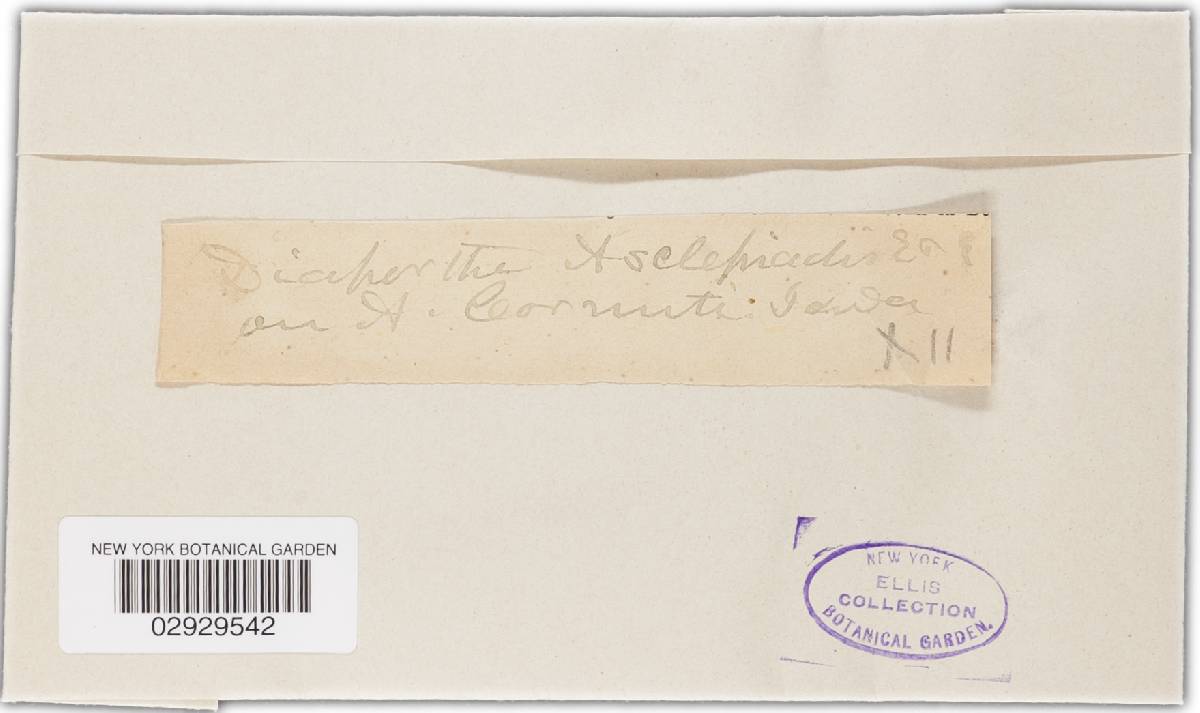 Diaporthe Asclepiadis E &
on A. Cornuti. Iowa
XII
NEW YORK BOTANICAL GARDEN
02929542
NEW YORK
ELLIS
COLLECTION
BOTANICAL GARDEN.